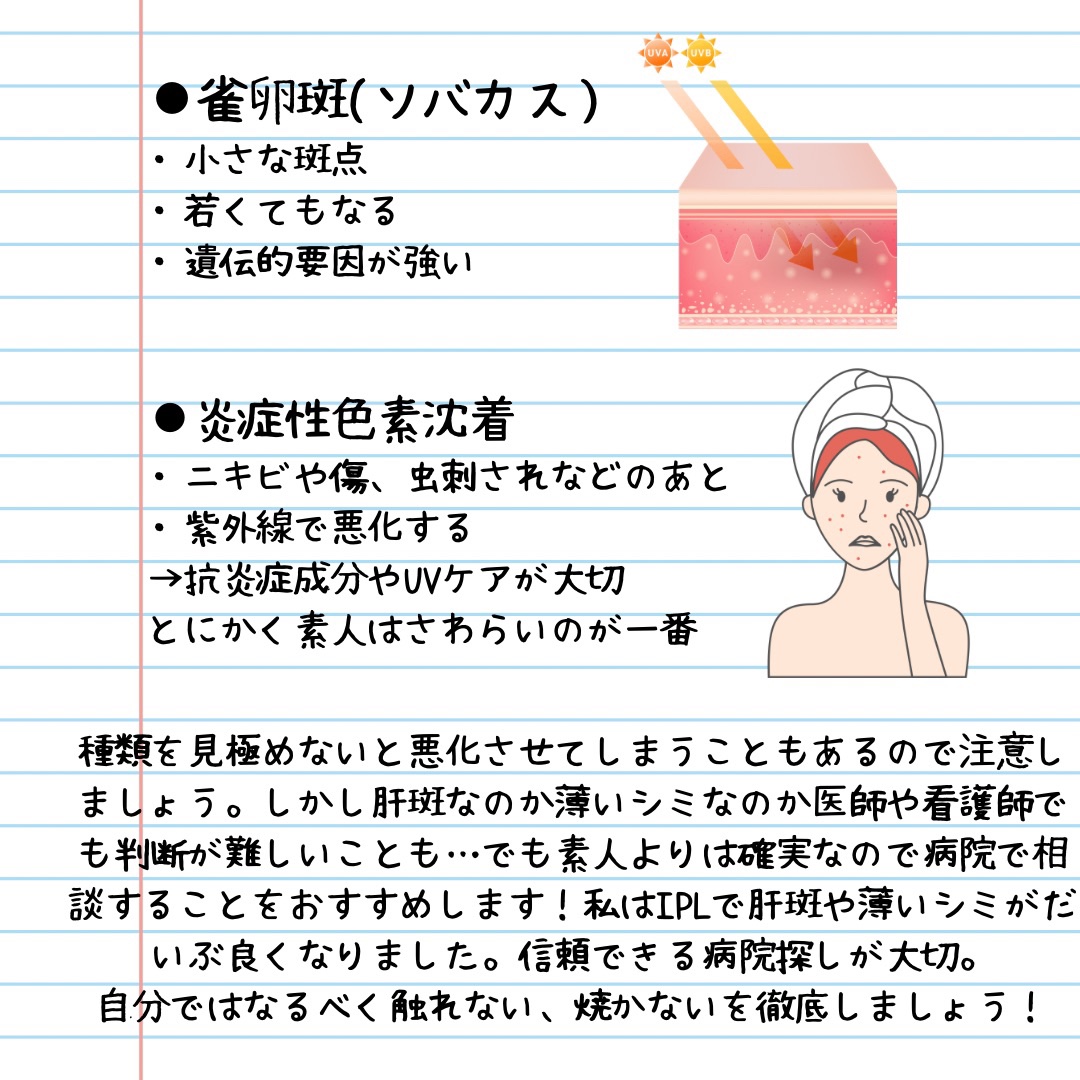 UVA UVB
●雀卵斑(ソバカス)
・小さな斑点
・若くてもなる
・遺伝的要因が強い
●炎症性色素沈着
・ニキビや傷、虫刺されなどのあと
・紫外線で悪化する
→抗炎症成分やUVケアが大切
とにかく素人はさわらいのが一番
種類を見極めないと悪化させてしまうこともあるので注意し
ましょう。しかし肝斑なのか薄いシミなのか医師や看護師で
も判断が難しいことも…でも素人よりは確実なので病院で相
談することをおすすめします！私はIPLで肝斑や薄いシミがだ
いぶ良くなりました。信頼できる病院探しが大切。
自分ではなるべく触れない、焼かないを徹底しましょう！